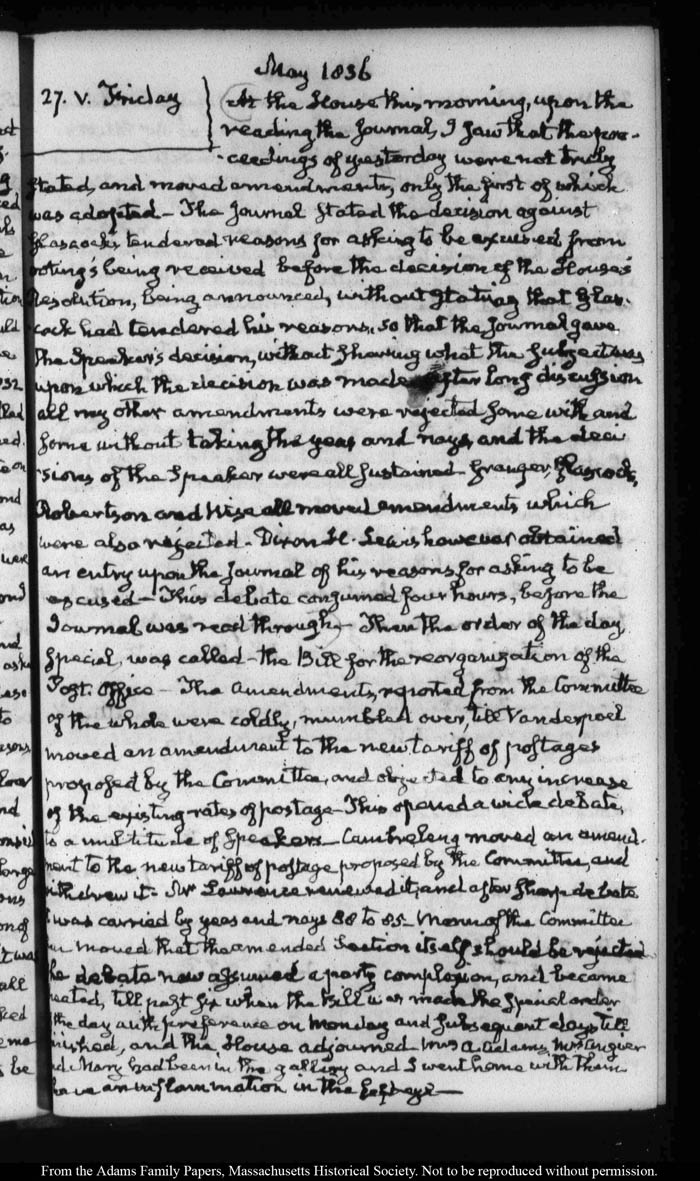 May 1836
27. V. Friday
At the House this morning, upon the
reading the Journal, I saw that the pro-
-ceedings of yesterday were not truly
stated, and moved amendments, only the first of which
was adopted - The Journal stated the decision against
Glascock's tendered reasons for asking to be excused from
voting's being received before the decision of the House's
Resolution, being announced, without stating that Glas-
cock had tendered his reasons, so that the Journal gave
the Speaker's decision, without shewing what the subject was
upon which the decision was made After long discussion
all my other amendments were rejected some with and
some without taking the yeas and nays, and the deci
sions of the Speaker were all sustained - Granger, Glascock,
Robertson and Wise all moved amendments which
were also rejected - Dixon H. Lewis however obtained
an entry upon the Journal of his reasons for asking to be
excused - This debate consumed four hours, before the
Journal was read through - Then the order of the day,
special, was called - the Bill for the reorganization of the
Post-Office - The amendments, reported from the Committee
of the whole were coldly, mumbled over, till Vanderpoel
moved an amendment to the new tariff of postages
proposed by the Committee, and objected to any increase
of the existing rates of postage - This opened a wide debate,
to a multitude of Speakers - Cambreleng moved an amend-
ment to the new tariff of postage proposed by the Committee, and
withdrew it - Mr Lawrence renewed it, and after sharp debate
it was carried by yeas and nays 88 to 85 - Mann of the Committee
moved that the amended Section itself should be rejected
he debate now assumed a party complexion, and became
heated, till past six when the bill was made the special order
of the day with preference on Monday and subsequent days till
finished, and the House adjourned - Mrs A. Adams,
Mary had been in the gallery and I went home with them
have an inflammation in the
From the Adams Family Papers, Massachusetts Historical Society. Not to be reproduced without permission.